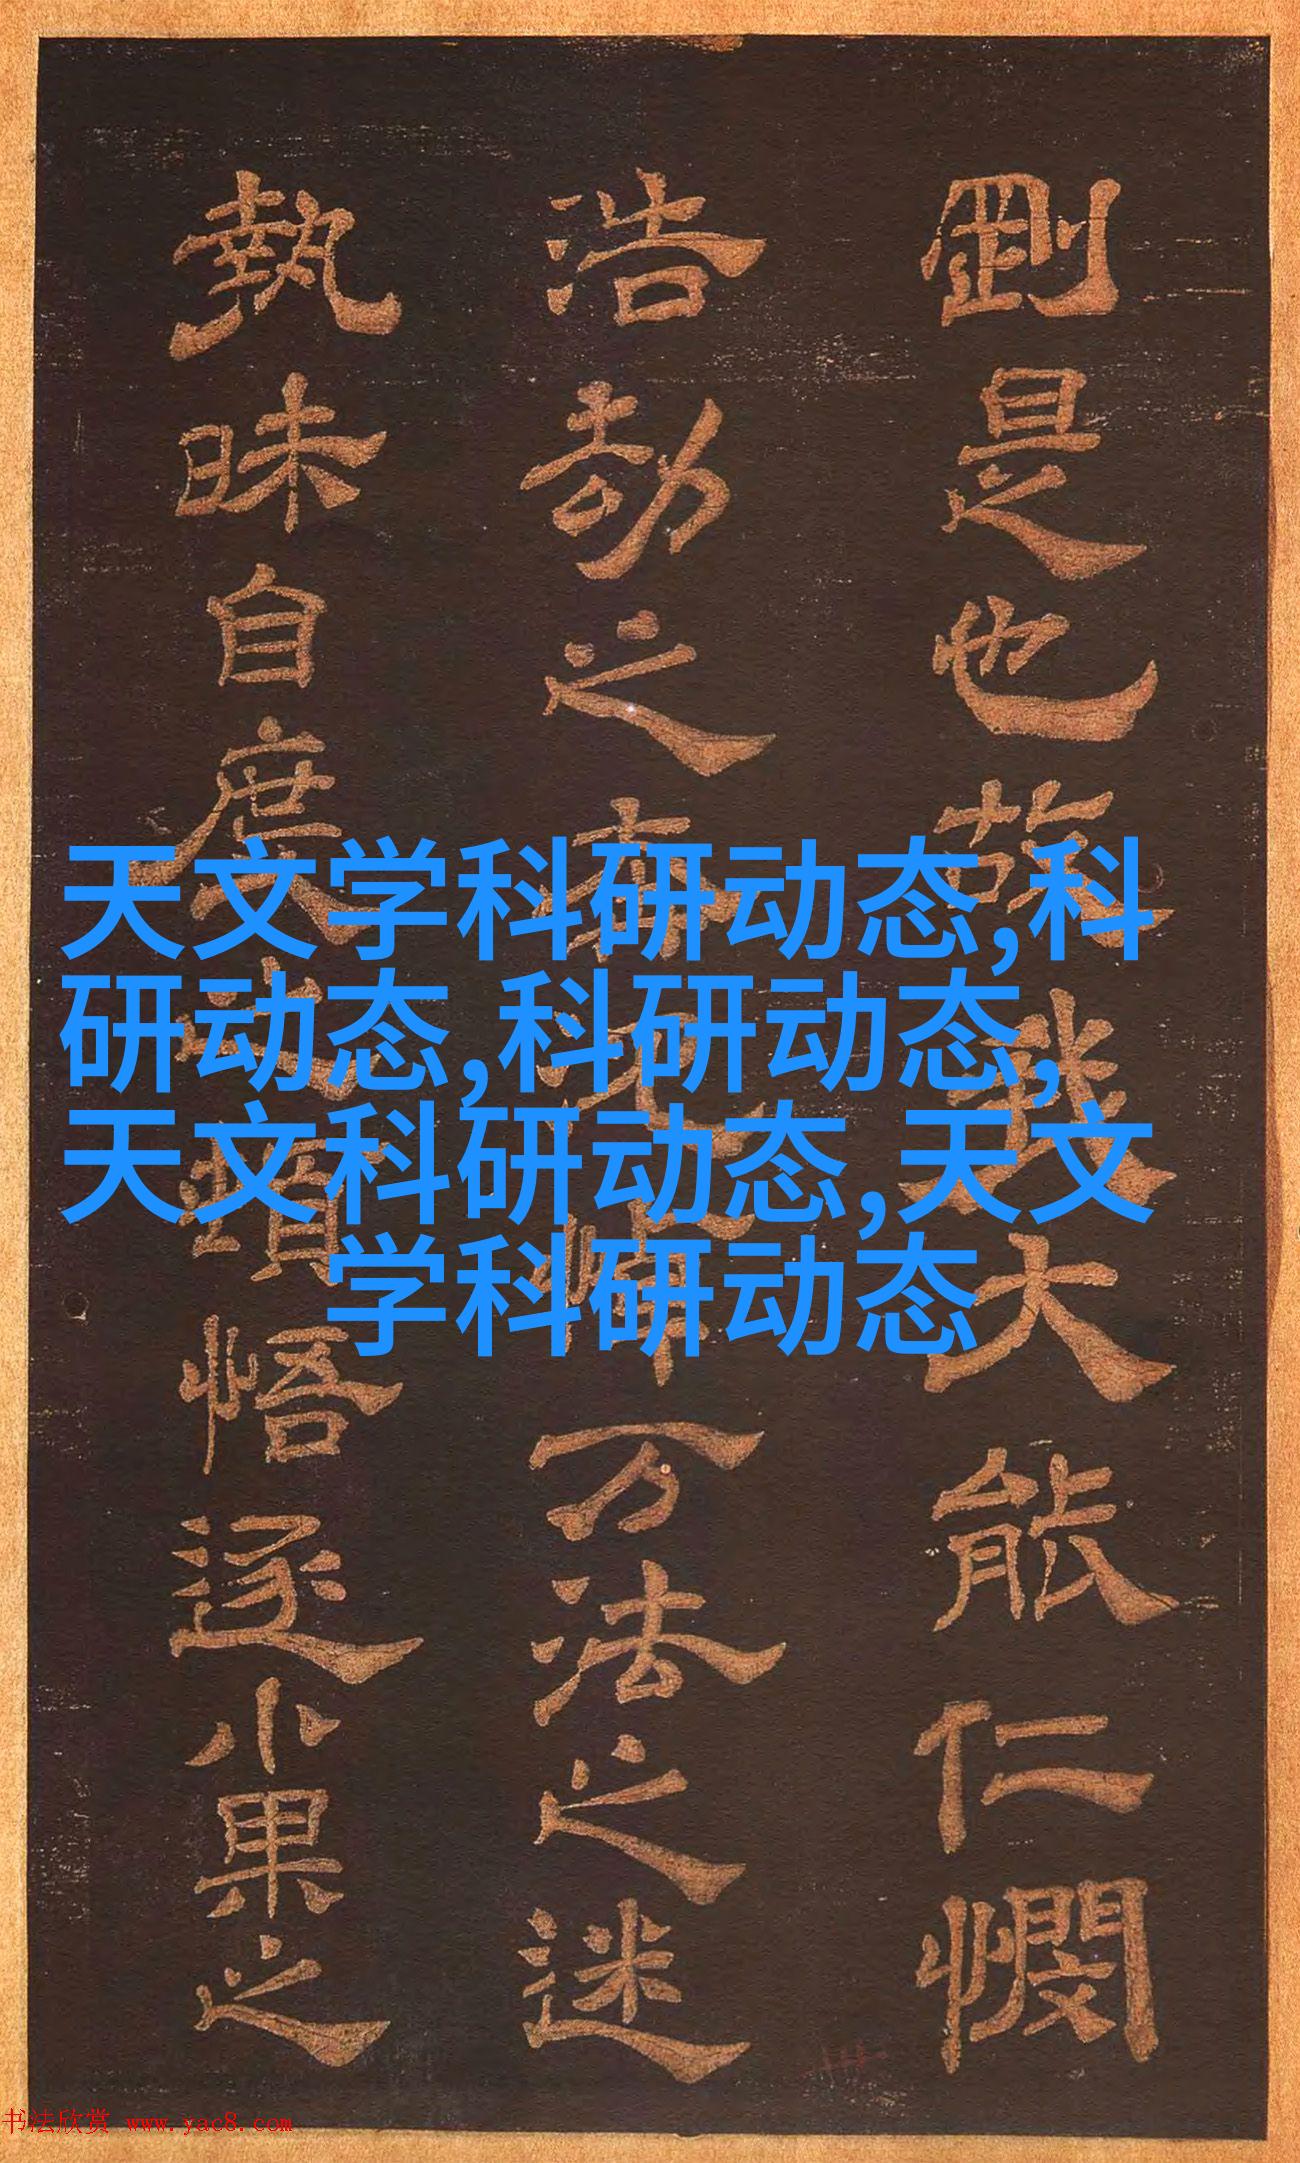 天文学科研动态,科
研动态,科研动态,
天文科研动态,天文
学科研动态
剛是也故我大能仁憫
浩劫之万法之迷
執昧自悟遂小果之
书法欣赏 www.yac8.com